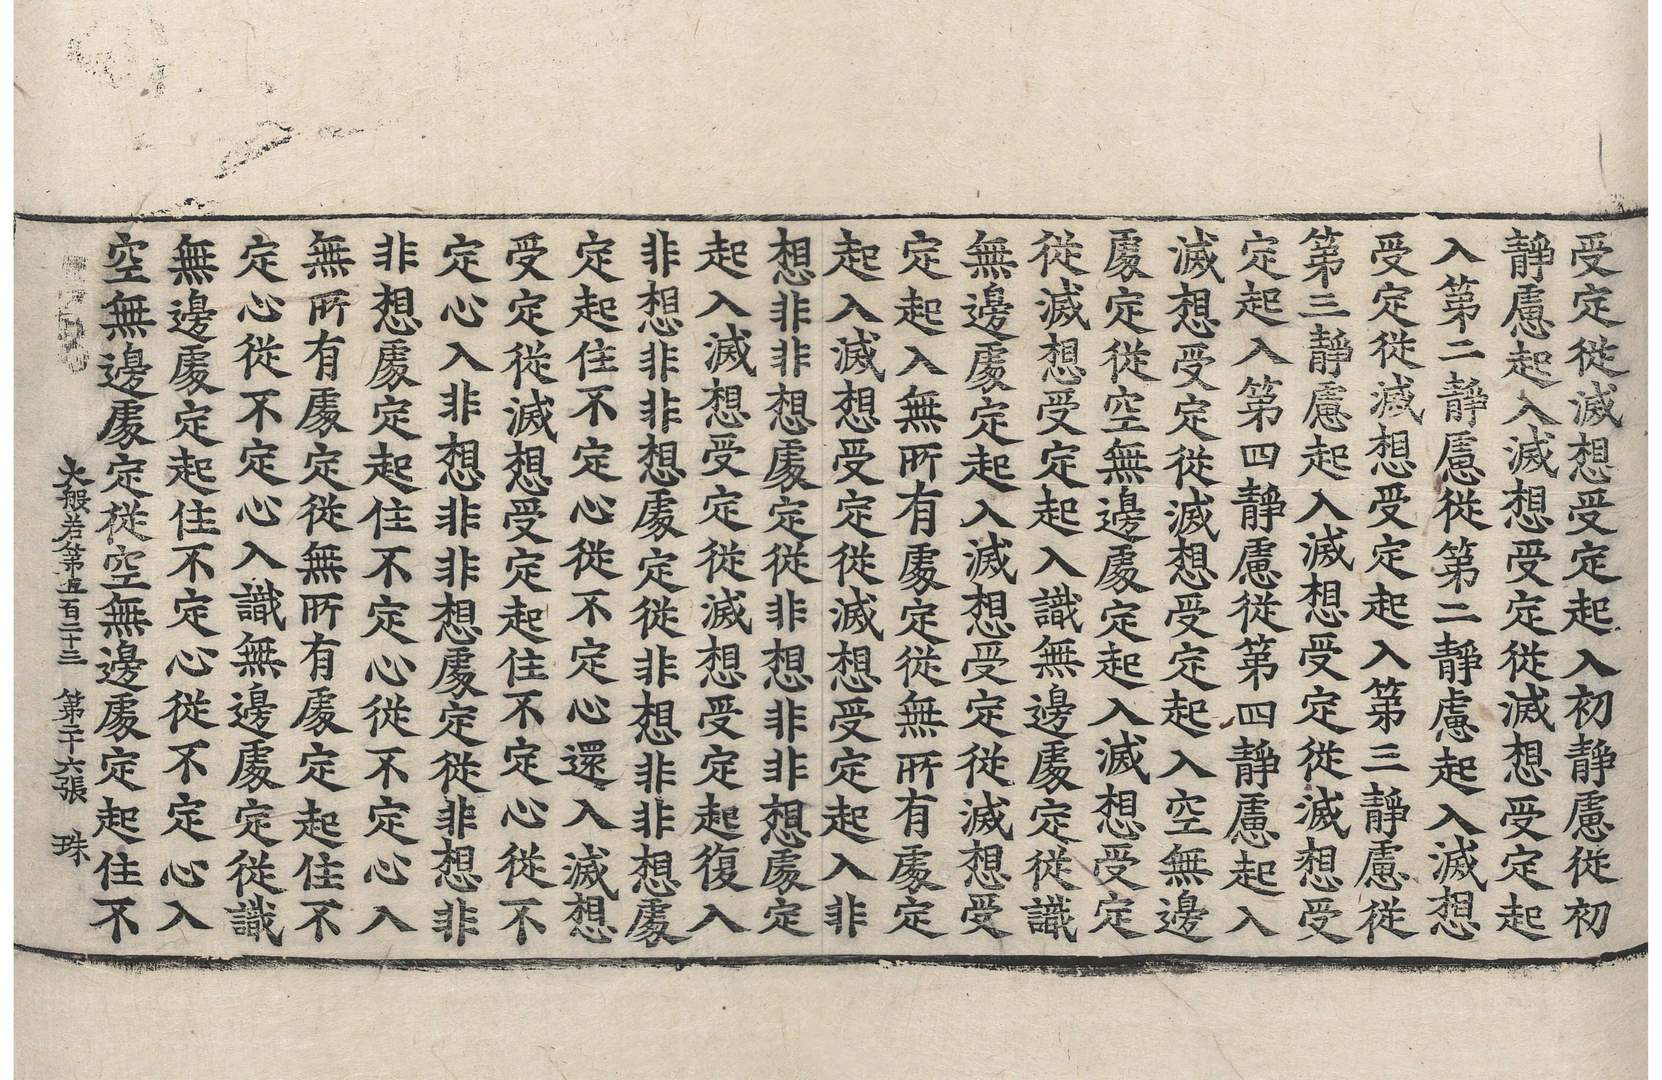 受定從滅想受定起入初靜慮從初
靜慮起入滅想受定從滅想受定起
入第二靜慮從第二靜慮起入滅想
受定從滅想受定起入第三靜慮從
第三靜慮起入滅想受定從滅想受
定起入第四靜慮從第四靜慮起入
滅想受定從滅想受定起入空無邊
處定從空無邊處定起入滅想受定
從滅想受定起入識無邊處定從識
無邊處定起入滅想受定從滅想受
定起入無所有處定從無所有處定
起入滅想受定從滅想受定起入非
想非非想處定從非想非非想處定
起入滅想受定從滅想受定起復入
非想非非想處定從非想非非想處
定起住不定心從不定心還入滅想
受定從滅想受定起住不定心從不
定心入非想非非想處定從非想非
非想處定起住不定心從不定心入
無所有處定從無所有處定起住不
定心從不定心入識無邊處定從識
無邊處定起住不定心從不定心入
空無邊處定從空無邊處定起住不
大般若第五百二十三 第二十六張 珠